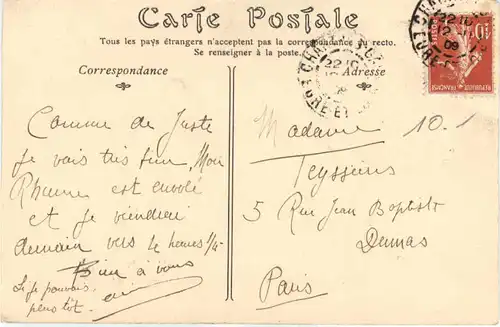 Carte Postale
Tous les pays étrangers n'acceptent pas la correspondance au recto.
Se renseigner à la poste.
Correspondance
Adresse
Comme de Juste
je vais très bien, Mon
Rhume est envolé
et je viendrai
demain vers 4 heures 1/4
Bien à vous
Si je pouvais
plus tôt.
Madame
10.1
5 Rue Jean Baptiste
Dumas
Paris